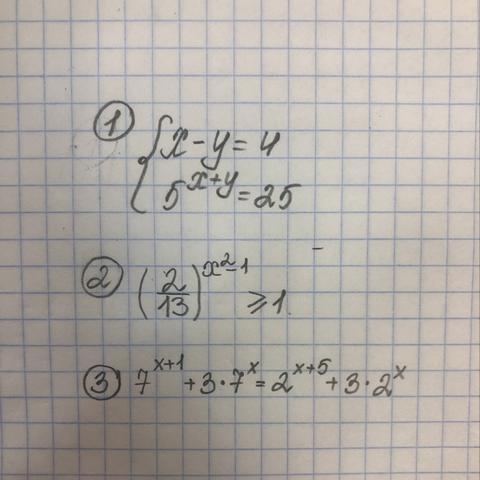 1 { x - y = 4
5^(x+y) = 25
2 (2/13)^(x^2-1) ⩾ 1
3 7^(x+1) + 3 · 7^x = 2^(x+5) + 3 · 2^x